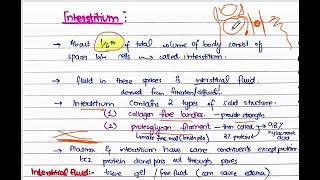 Interstitium:
→ About 1/6th of total volume of body consist of
spaces b/w cells → called interstitium.
→ fluid in these spaces is interstitial fluid.
derived from filtration/diffusion.
→ Interstitium contains 2 types of solid structure.
(1) collagen fibre bundles → provide strength
(2) proteoglycan filament → thin coiled → 98%
hyaluronic acid
2% protein
→ Plasma & interstitium have same constituents except proteins
bcz protein do not pass out through pores
Interstitial fluid:- tissue gel / free fluid (can cause edema)